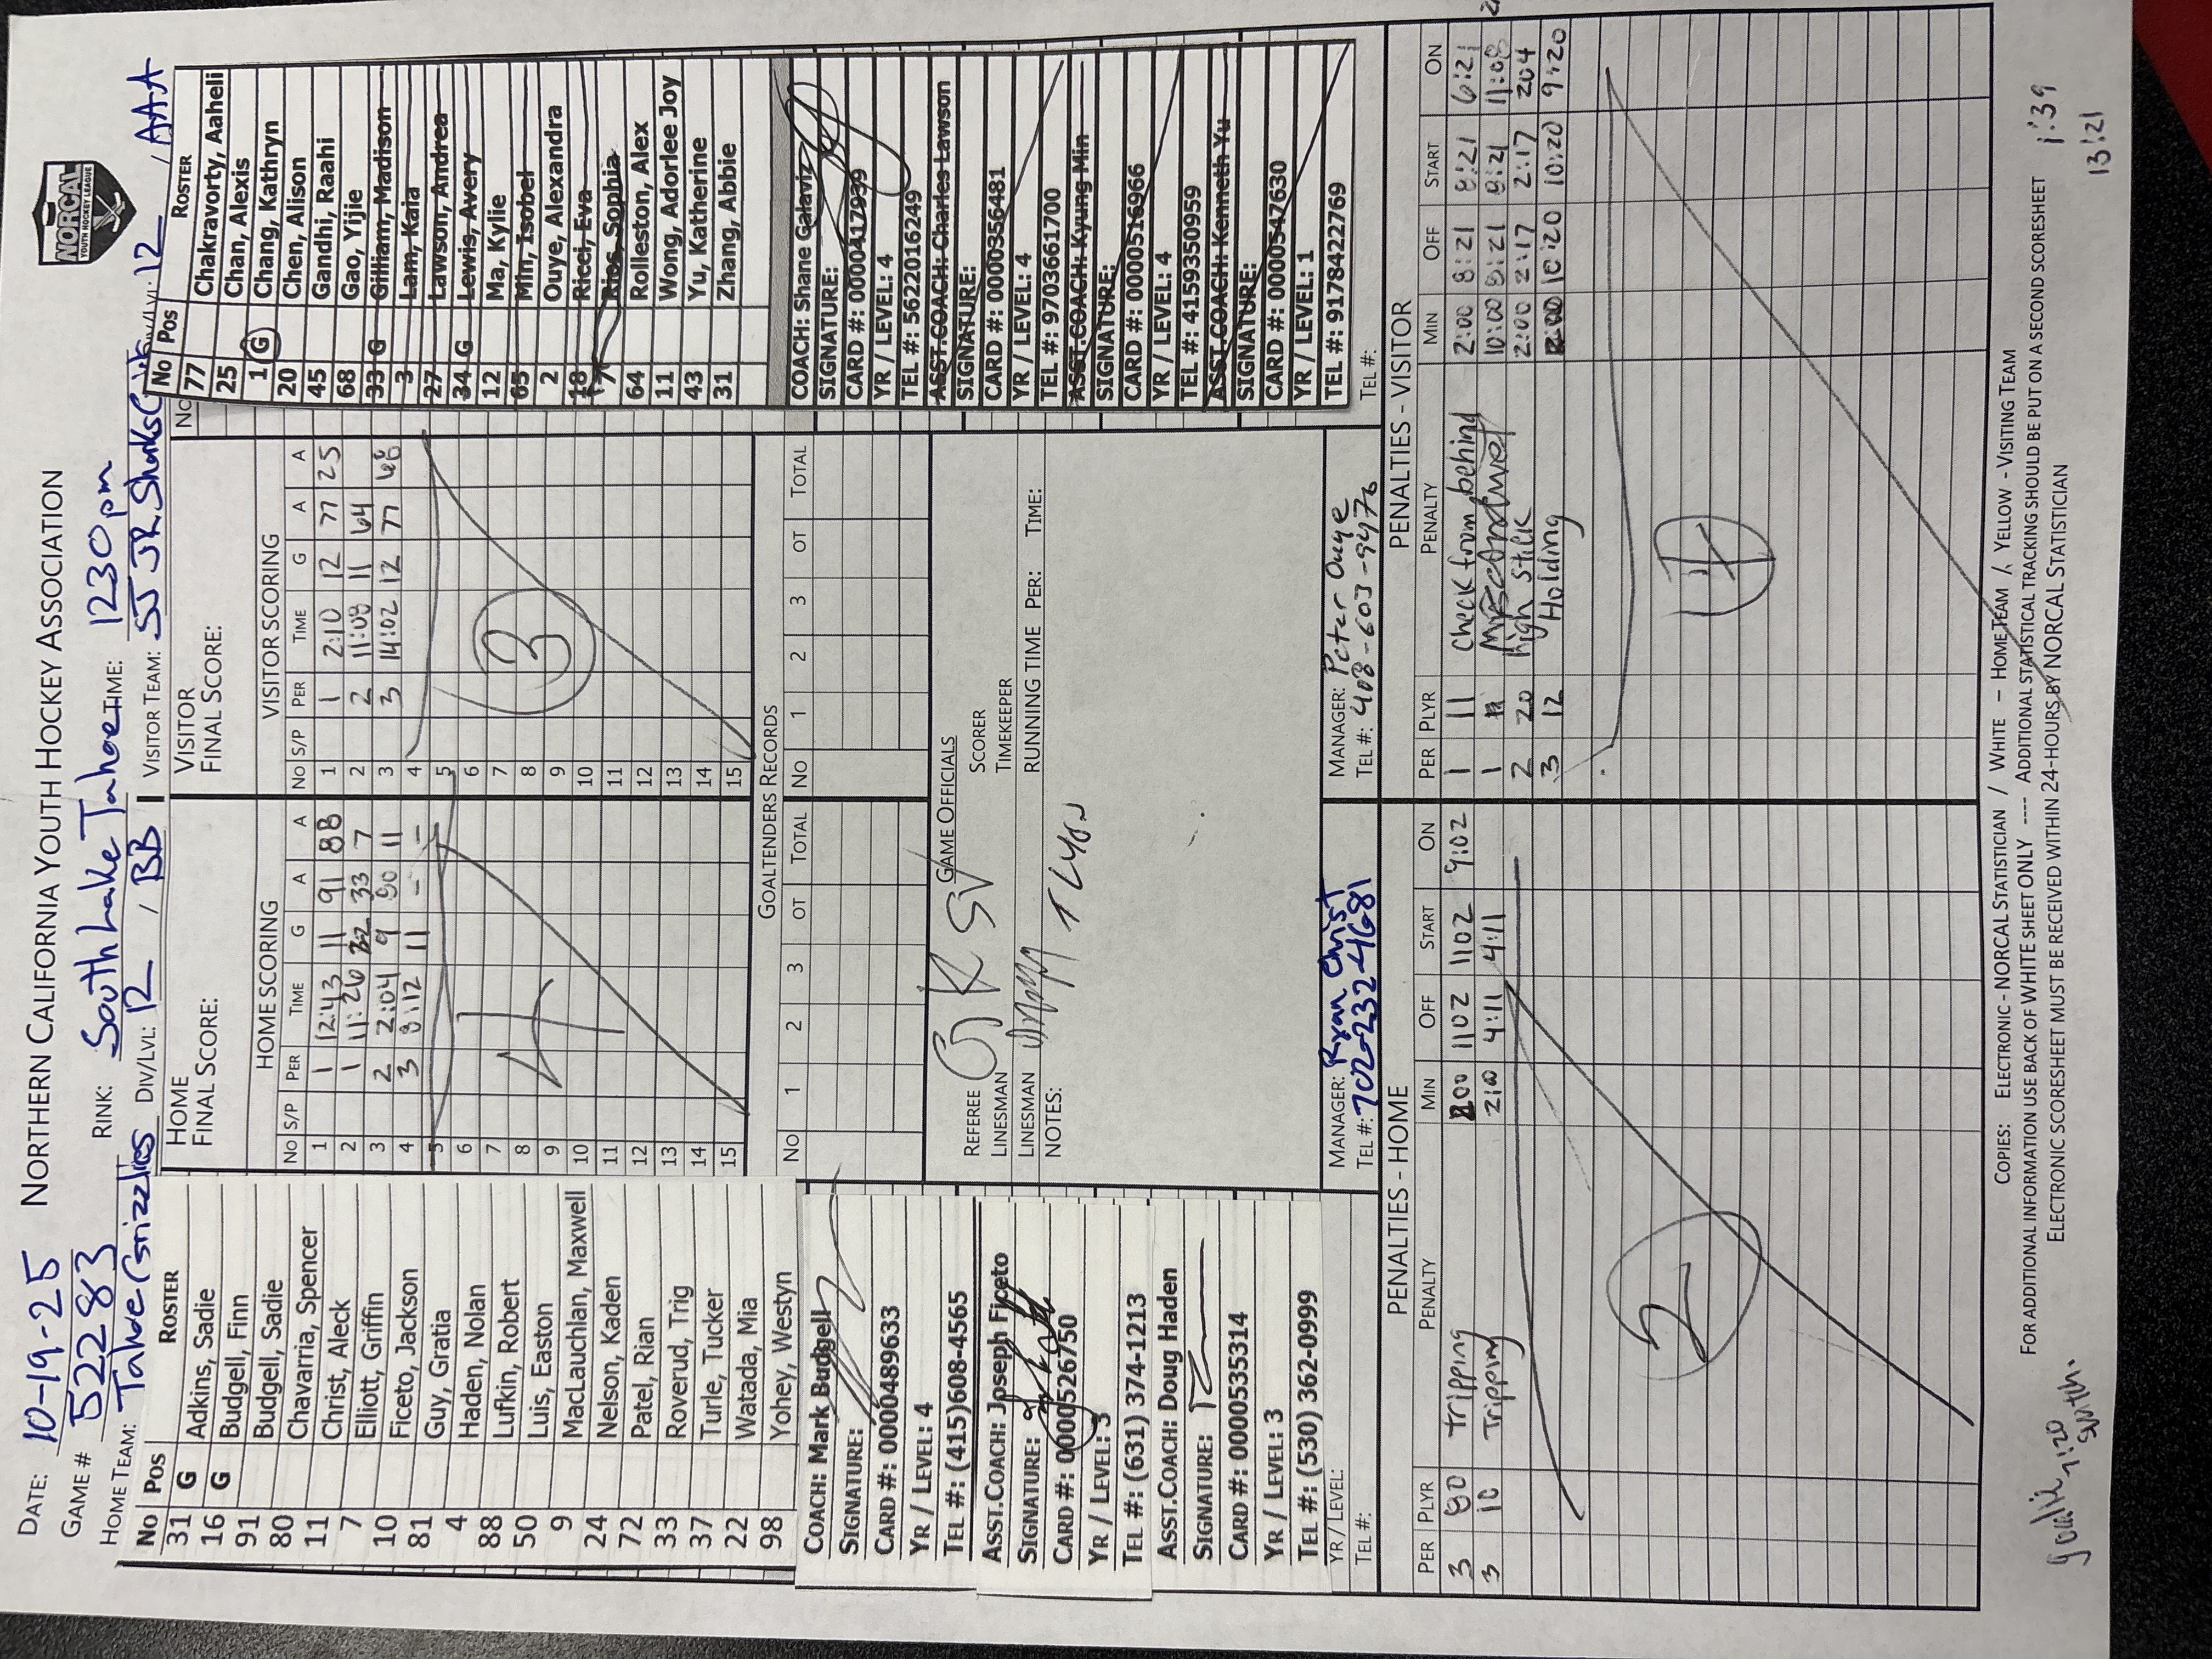 DATE: 10-19-25 NORTHERN CALIFORNIA YOUTH HOCKEY ASSOCIATION
NORCAL
YOUTH HOCKEY LEAGUE
GAME # 52283 RINK: South Lake Tahoe TIME: 1230pm
HOME TEAM: Tahoe Grizzlies DIV/LVL: 12 / BB VISITOR TEAM: SJ JR Sharks DIV/LVL: 12 / AAA
No Pos ROSTER
31 G Adkins, Sadie
16 G Budgell, Finn
91 Budgell, Sadie
80 Chavarria, Spencer
11 Christ, Aleck
7 Elliott, Griffin
10 Ficeto, Jackson
81 Guy, Gratia
4 Haden, Nolan
88 Lufkin, Robert
50 Luis, Easton
9 MacLauchlan, Maxwell
24 Nelson, Kaden
72 Patel, Rian
33 Roverud, Trig
37 Turle, Tucker
22 Watada, Mia
98 Yohey, Westyn
COACH: Mark Budgell
SIGNATURE:
CARD #: 0000489633
YR / LEVEL: 4
TEL #: (415)608-4565
ASST.COACH: Joseph Ficeto
SIGNATURE:
CARD #: 0000526750
YR / LEVEL: 3
TEL #: (631) 374-1213
ASST.COACH: Doug Haden
SIGNATURE:
CARD #: 0000535314
YR / LEVEL: 3
TEL #: (530) 362-0999
YR / LEVEL:
TEL #:
HOME
FINAL SCORE:
HOME SCORING
No S/P PER TIME G A A
1 1 12:43 11 91 88
2 1 11:26 22 33 7
3 2 2:04 9 50 11
4 3 8:12 11 - -
5
6
7
8
9
10
11
12
13
14
15
4
VISITOR
FINAL SCORE:
VISITOR SCORING
No S/P PER TIME G A A
1 1 2:10 12 77 25
2 2 11:08 11 64
3 3 14:02 12 77 68
4
5
6
7
8
9
10
11
12
13
14
15
3
GOALTENDERS RECORDS
No 1 2 3 OT TOTAL
No 1 2 3 OT TOTAL
GAME OFFICIALS
REFEREE SCORER
LINESMAN TIMEKEEPER
LINESMAN RUNNING TIME PER: TIME:
NOTES:
MANAGER: Ryan Christ
TEL #: 702-232-4681
MANAGER: Peter Ouye
TEL #: 408-603-9976
No Pos ROSTER
77 Chakravorty, Aaheli
25 Chan, Alexis
1 G Chang, Kathryn
20 Chen, Alison
45 Gandhi, Raahi
68 Gao, Yijie
33 G Gilliam, Madison
3 Lam, Kaia
27 Lawson, Andrea
34 G Lewis, Avery
12 Ma, Kylie
65 Min, Isobel
2 Ouye, Alexandra
18 Ricci, Eva
7 Rios, Sophia
64 Rolleston, Alex
11 Wong, Adorlee Joy
43 Yu, Katherine
31 Zhang, Abbie
COACH: Shane Galaviz
SIGNATURE:
CARD #: 0000417939
YR / LEVEL: 4
TEL #: 5622016249
ASST.COACH: Charles Lawson
SIGNATURE:
CARD #: 0000356481
YR / LEVEL: 4
TEL #: 9703661700
ASST.COACH: Kyung Min
SIGNATURE:
CARD #: 0000516966
YR / LEVEL: 4
TEL #: 4159350959
ASST.COACH: Kenneth Yu
SIGNATURE:
CARD #: 0000547630
YR / LEVEL: 1
TEL #: 9178422769
TEL #:
PENALTIES - HOME
PER PLYR PENALTY MIN OFF START ON
3 80 tripping 200 1102 1102 9:02
3 10 Tripping 210 4:11 4:11
2
PENALTIES - VISITOR
PER PLYR PENALTY MIN OFF START ON
1 11 Check from behind 2:00 8:21 8:21 6:21
1 Misconduct 10:00 8:21 8:21 11:08
2 20 high stick 2:00 2:17 2:17 204
3 12 Holding 2:00 10:20 10:20 9:20
4
COPIES: ELECTRONIC - NORCAL STATISTICIAN / WHITE – HOME TEAM / YELLOW - VISITING TEAM
FOR ADDITIONAL INFORMATION USE BACK OF WHITE SHEET ONLY ---- ADDITIONAL STATISTICAL TRACKING SHOULD BE PUT ON A SECOND SCORESHEET
ELECTRONIC SCORESHEET MUST BE RECEIVED WITHIN 24-HOURS BY NORCAL STATISTICIAN
goalie 7:20
switch.
1:39
13:21